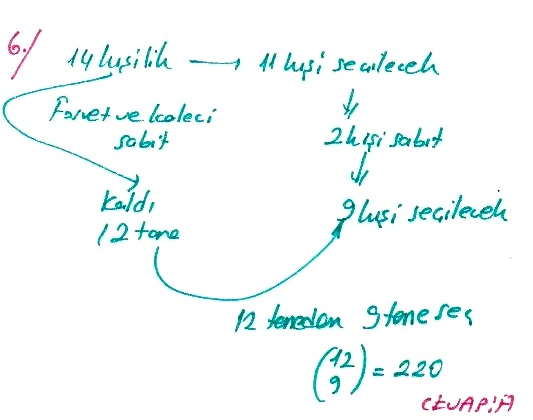 6./ 14 kişilik → 11 kişi seçilecek
Forvet ve kaleci
sabit
2 kişi sabit
kaldı
12 tane
9 kişi seçilecek
12 taneden 9 tane seç
(12 9) = 220
CEVAP: A